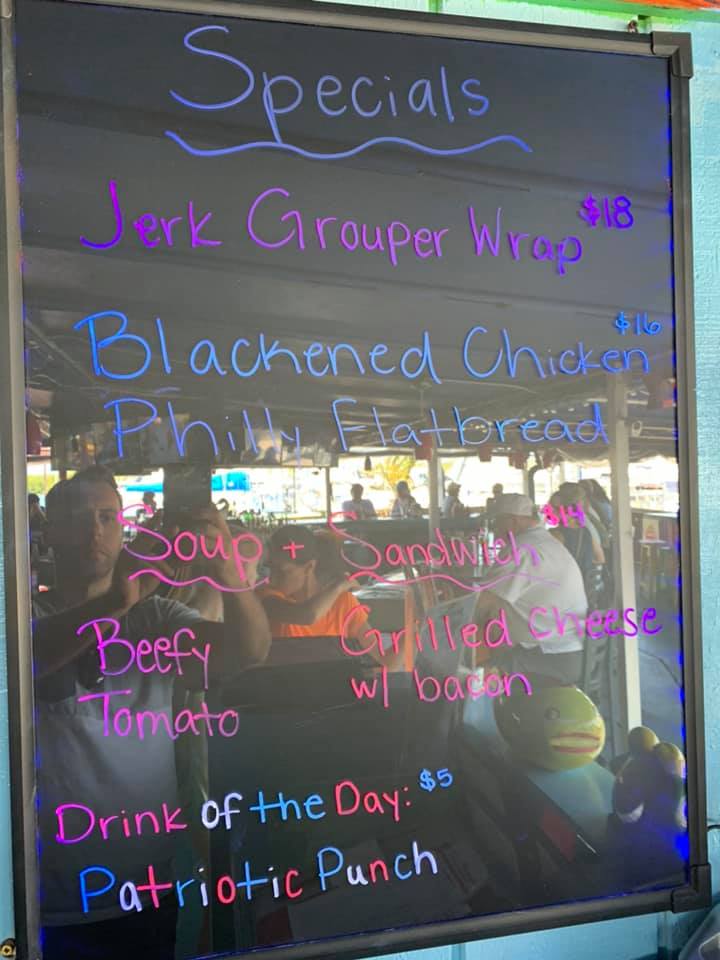 Specials
Jerk Grouper Wrap $18
Blackened Chicken $16
Philly Flatbread
Soup + Sandwich $14
Beefy Grilled Cheese
Tomato w/ bacon
Drink of the Day: $5
Patriotic Punch